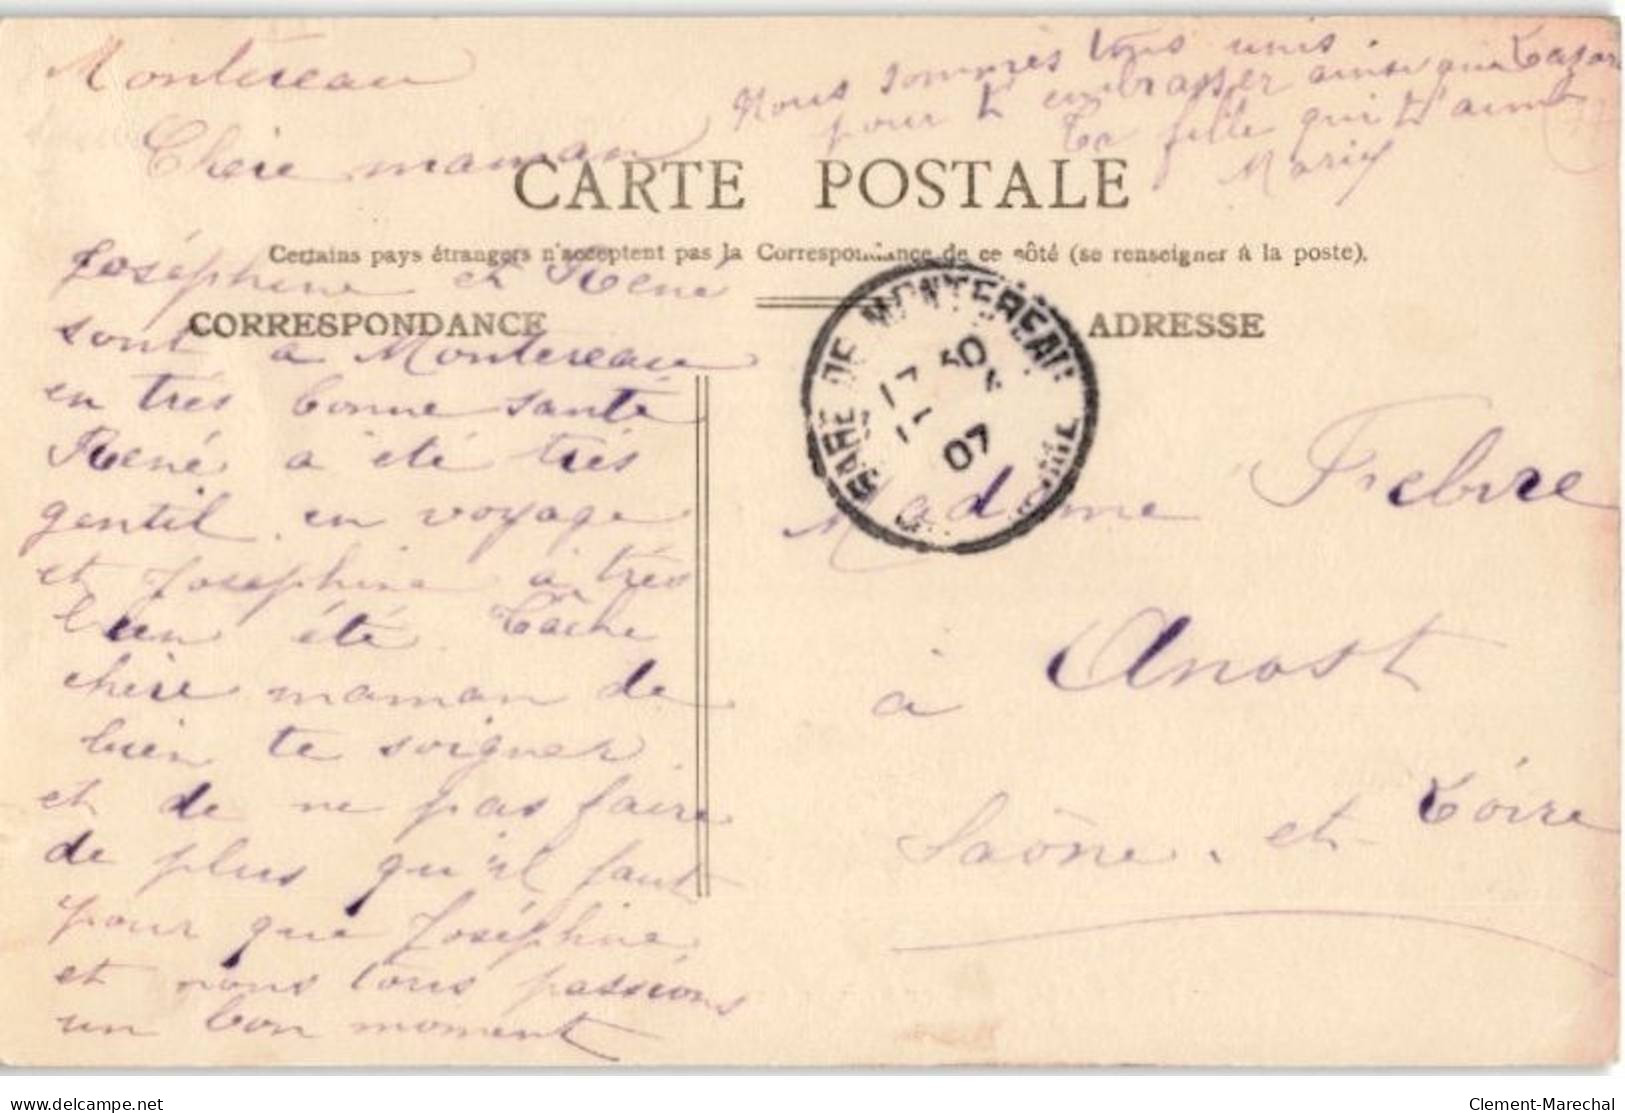 Montereau
Chère maman
Joséphine et René
sont à Montereau
en très bonne santé
René a été très
gentil en voyage
et Joséphine a très
bien été. Tâche
chère maman de
bien te soigner
et de ne pas faire
de plus qu'il faut
pour que Joséphine
et nous tous passions
un bon moment
Nous sommes tous unis.
pour t'embrasser ainsi que
Ta fille qui t'aime
Marie
CARTE POSTALE
Certains pays étrangers n'acceptent pas la Correspondance de ce côté (se renseigner à la poste).
CORRESPONDANCE
ADRESSE
GARE DE MONTEREAU
17 50
07
Madame Febvre
à Anost
Saône et Loire
delcampe.net
Clement-Marechal